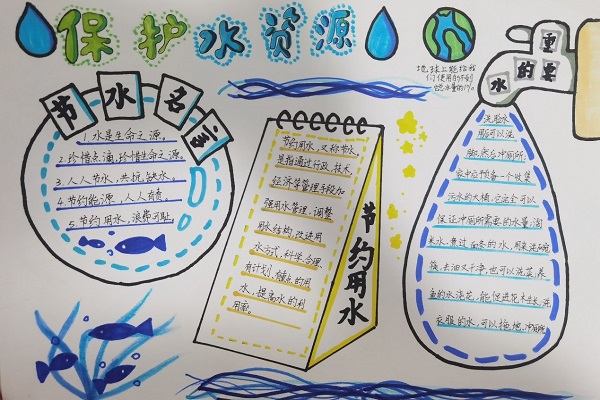 保护水资源
节水名言
1.水是生命之源。
2.珍惜点滴,珍惜生命之源。
3.人人节水,共抗缺水。
4.节约能源,人人有责。
5.节约用水,浪费可耻。
节约用水,又称节水,
是指通过行政,技术,
经济等管理手段加
强用水管理,调整
用水结构,改进用
水方式,科学,合理,
有计划,有重点的用
水,提高水的利
用率。
节约用水
地球上能给我
们使用的不到
总水量的1%。
水的重要
洗脸水
脚可以洗
脚,然后冲厕所。
家中应预备一个收集
污水的大桶,它完全可以
保证冲厕所需要的水量;淘
米水,煮过面条的水,用来洗碗
筷,去油又干净;也可以洗菜,养
鱼的水浇花,能促进花木生长;洗
衣服的水,可以拖地,冲厕所